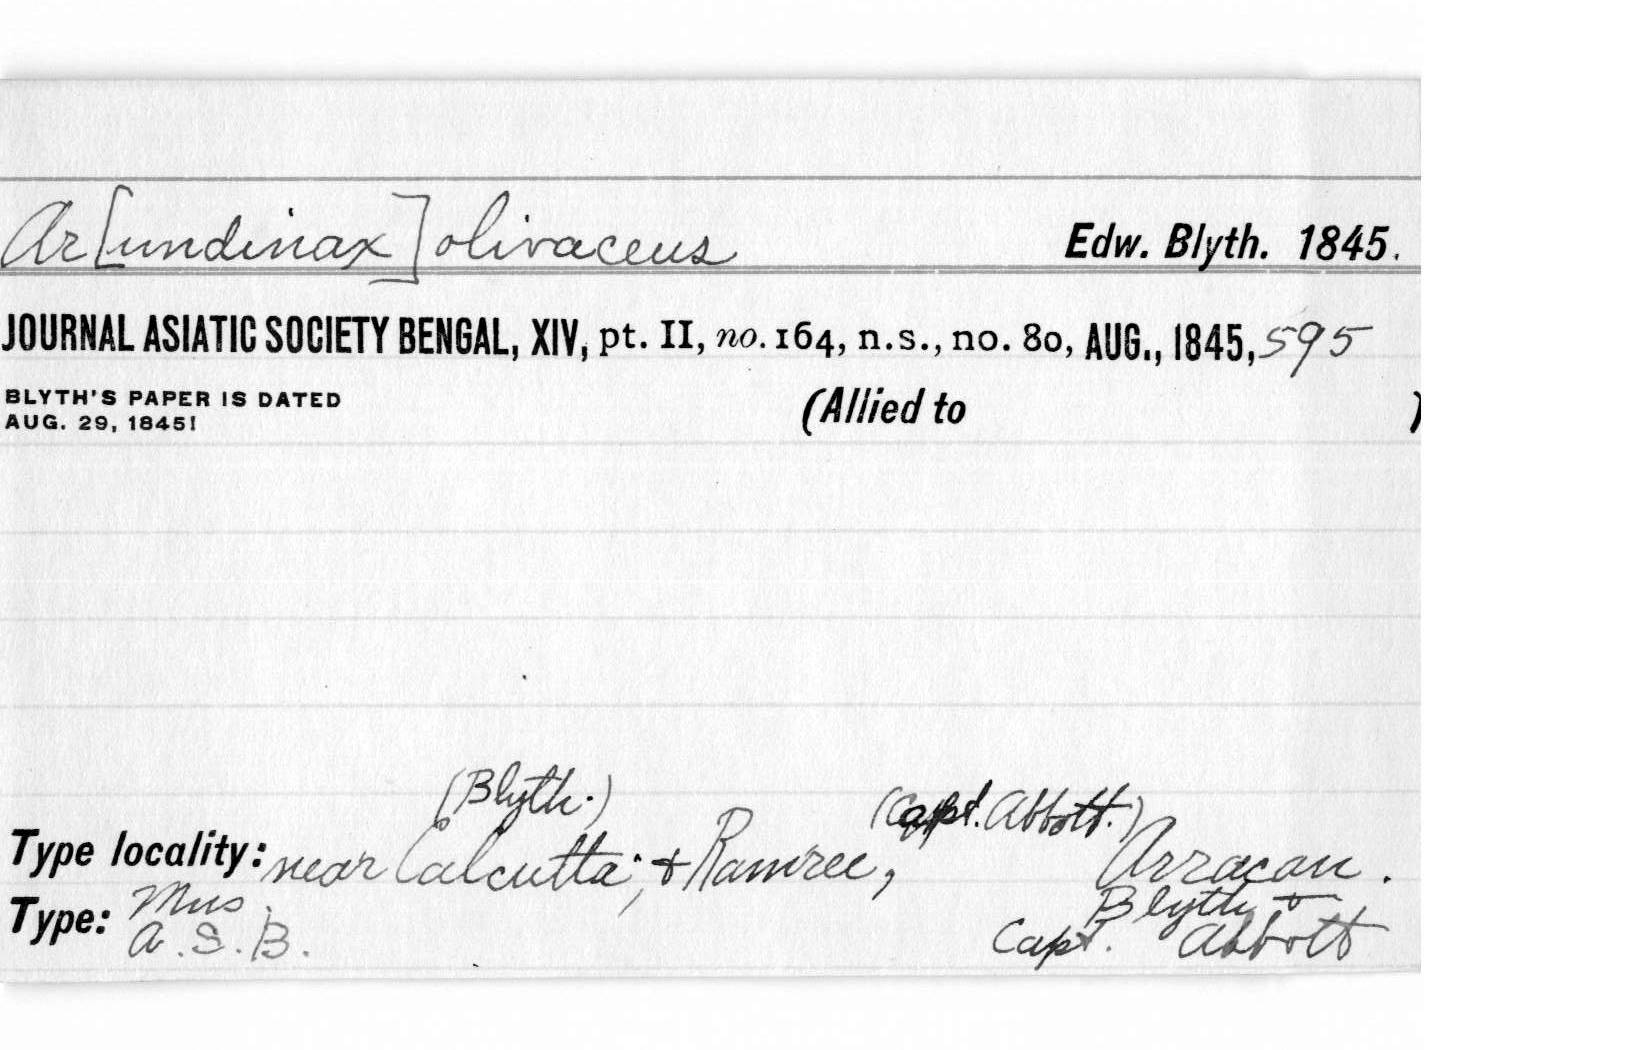 Ar[undinax] olivaceus Edw. Blyth. 1845.
JOURNAL ASIATIC SOCIETY BENGAL, XIV, pt. II, no. 164, n.s., no. 80, AUG., 1845, 595
BLYTH'S PAPER IS DATED
AUG. 29, 1845!
(Allied to )
(Blyth.) (Capt. Abbott.)
Type locality: near Calcutta; + Ramree, Arracan.
Type: Mus. Blyth +
A.S.B. Capt. Abbott